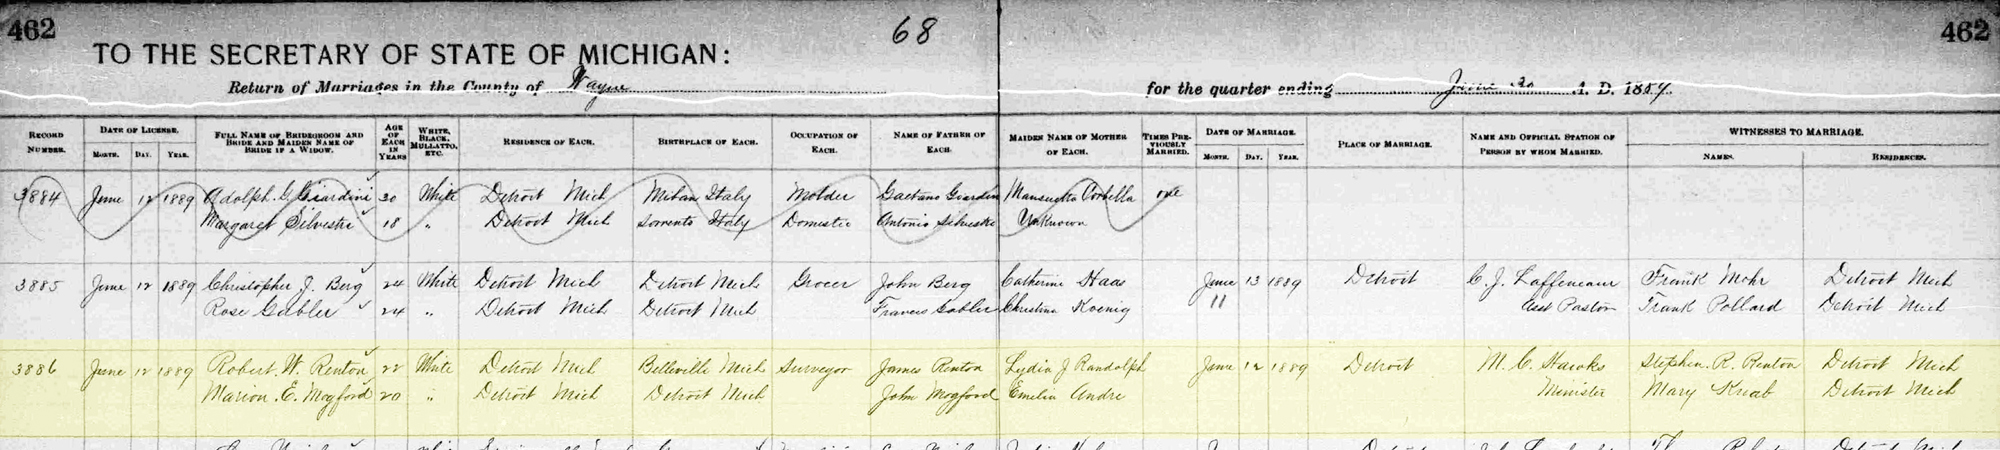 462 68 462
TO THE SECRETARY OF STATE OF MICHIGAN:
Return of Marriages in the County of Wayne for the quarter ending June 30 A. D. 1889
RECORD NUMBER. DATE OF LICENSE. MONTH. DAY. YEAR. FULL NAME OF BRIDEGROOM AND BRIDE AND MAIDEN NAME OF BRIDE IF A WIDOW. AGE OF EACH IN YEARS WHITE, BLACK, MULLATTO, ETC. RESIDENCE OF EACH. BIRTHPLACE OF EACH. OCCUPATION OF EACH. NAME OF FATHER OF EACH. MAIDEN NAME OF MOTHER OF EACH. TIMES PREVIOUSLY MARRIED. DATE OF MARRIAGE. MONTH. DAY. YEAR. PLACE OF MARRIAGE. NAME AND OFFICIAL STATION OF PERSON BY WHOM MARRIED. WITNESSES TO MARRIAGE. NAMES. RESIDENCES.
3884 June 12 1889 Adolph. G. Giardini 30 White Detroit Mich Milan Italy Molder Gaetano Giardini Mansueta Corbella one
Margaret Silvestri 18 " Detroit Mich Sorrento Italy Domestic Antonio Silvestri Unknown
3885 June 12 1889 Christopher J. Berg 24 White Detroit Mich Detroit Mich Grocer John Berg Catherine Haas June 13 1889 Detroit C. J. Laffeneaur Frank Mohr Detroit Mich
Rose Gabler 24 " Detroit Mich Detroit Mich Francis Gabler Christina Koenig 11 Asst Pastor Frank Pollard Detroit Mich
3886 June 12 1889 Robert. W. Renton 22 White Detroit Mich Belleville Mich Surveyor James Renton Lydia J Randolph June 12 1889 Detroit M. C. Hawks Stephen. R. Renton Detroit Mich
Marion. E. Mogford 20 " Detroit Mich Detroit Mich John Mogford Emelia Andre Minister Mary Knab Detroit Mich